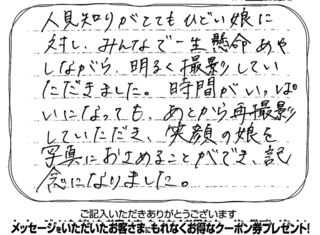 人見知りがとてもひどい娘に
対し、みんなで一生懸命あや
しながら、明るく撮影してい
ただきました。時間がいっぱ
いになっても、あとから再撮影
していただき、笑顔の娘を
写真におさめることができ、記
念になりました。
ご記入いただきありがとうございます
メッセージをいただいたお客さまにもれなくお得なクーポン券プレゼント!